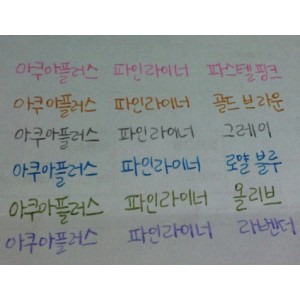 아쿠아플러스 파인라이너 파스텔핑크
아쿠아플러스 파인라이너 골드 브라운
아쿠아플러스 파인라이너 그레이
아쿠아플러스 파인라이너 로얄 블루
아쿠아플러스 파인라이너 올리브
아쿠아플러스 파인라이너 라벤더